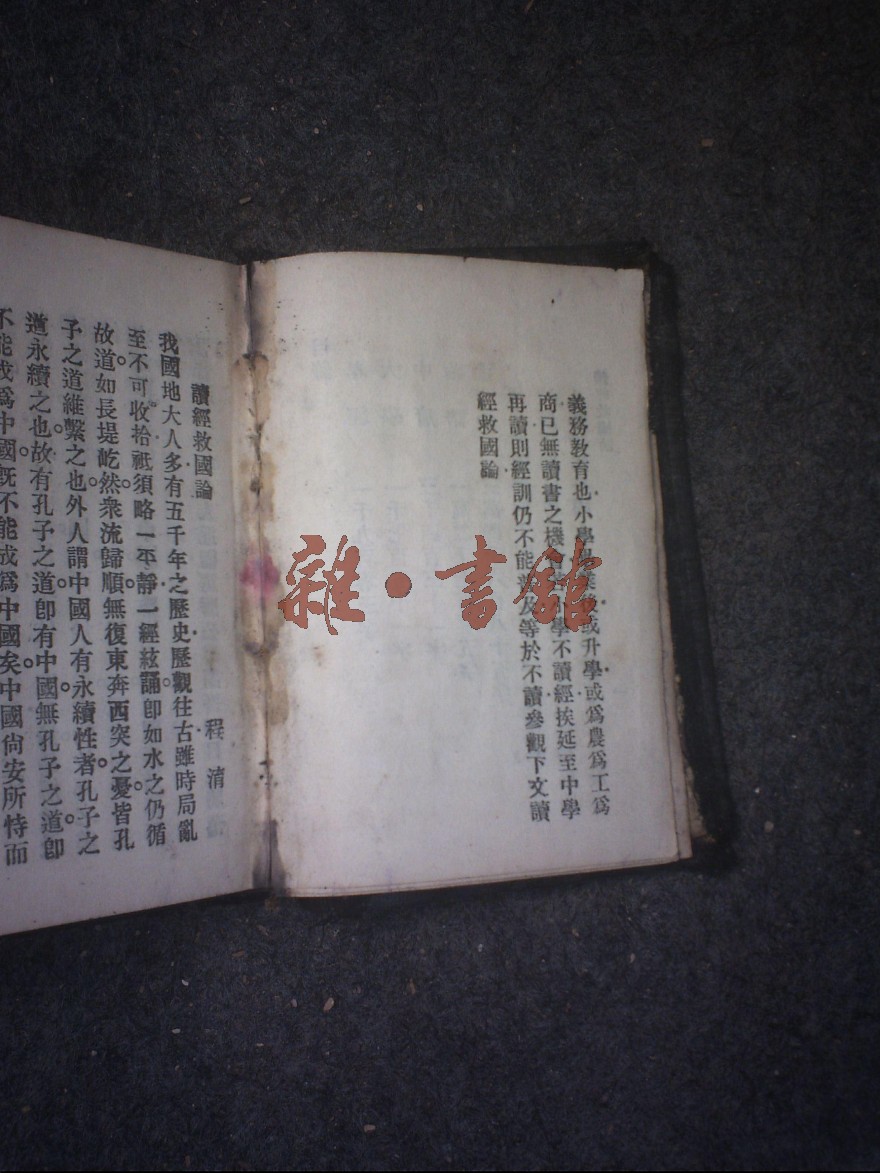 義務教育也小學畢業後或升學或爲農爲工爲
商已無讀書之機會若小學不讀經挨延至中學
再讀則經訓仍不能普及等於不讀參觀下文讀
經救國論
讀經救國論
程淯
我國地大人多有五千年之歷史歷觀往古雖時局亂
至不可收拾祇須略一平靜一經絃誦卽如水之仍循
故道如長堤屹然衆流歸順無復東奔西突之憂皆孔
子之道維繫之也外人謂中國人有永續性者孔子之
道永續之也故有孔子之道卽有中國無孔子之道卽
不能成爲中國旣不能成爲中國矣中國尙安所恃而
雜·書館